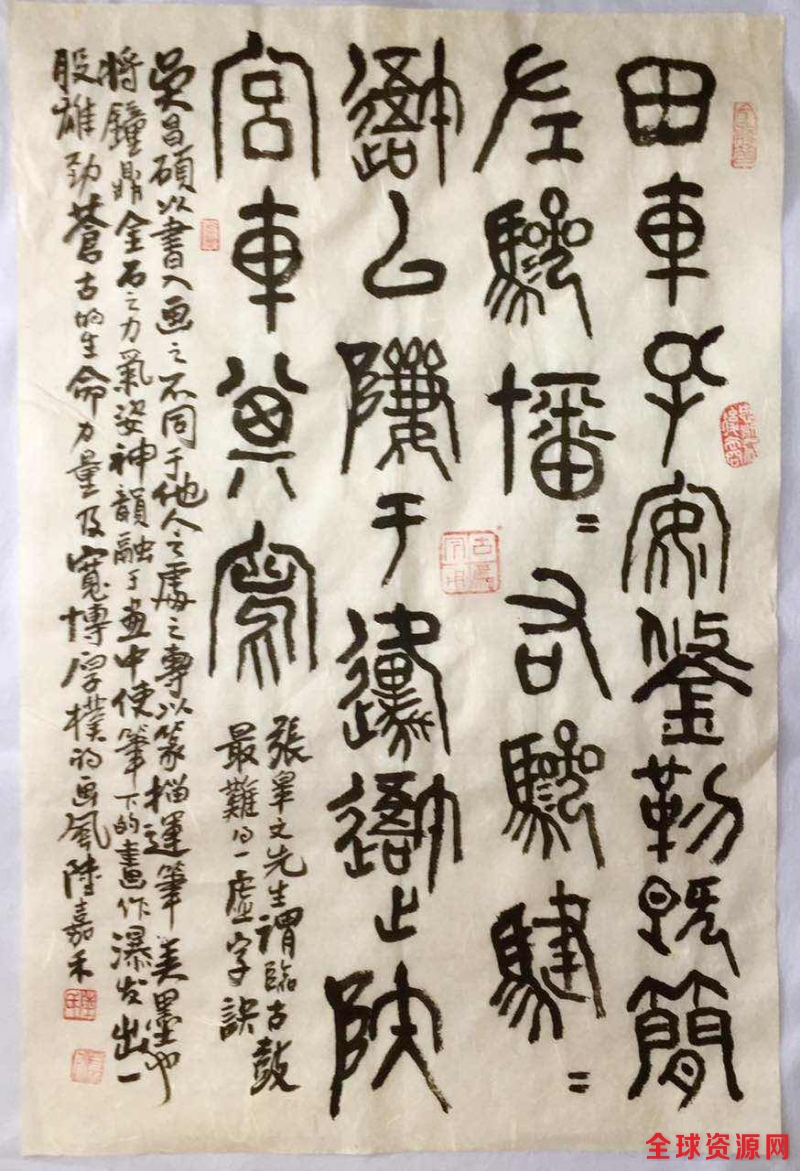 田車孔安鋚勒既簡
左驂旛=右驂騝=
䢒以隮于邍䢒止陝
宮車其寫
張皋文先生謂臨古鼓
最難得一虛字訣
吳昌碩以書入画之不同于他人之處之專以篆籀運筆美墨也
将鐘鼎金石之力氣姿神韻融于畫中使筆下的畫作瀑发出一
股雄劲蒼古的生命力量及寬博厚樸的画風陸嘉禾
全球资源网